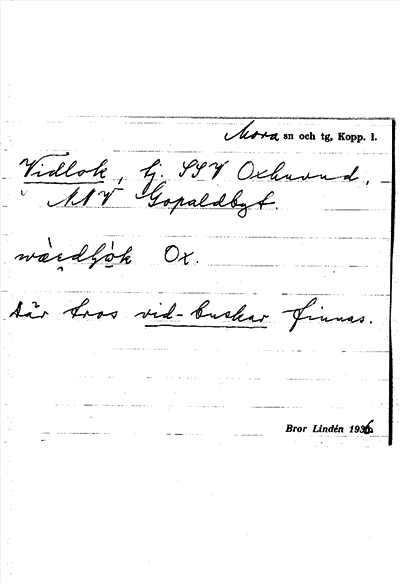 Mora sn och tg, Kopp. l.
Vidlok, tj. SSV Oxhuvud,
NNV Gopaldbyt.
Ox.
där tros vid-buskar finnas.
Bror Lindén 1936